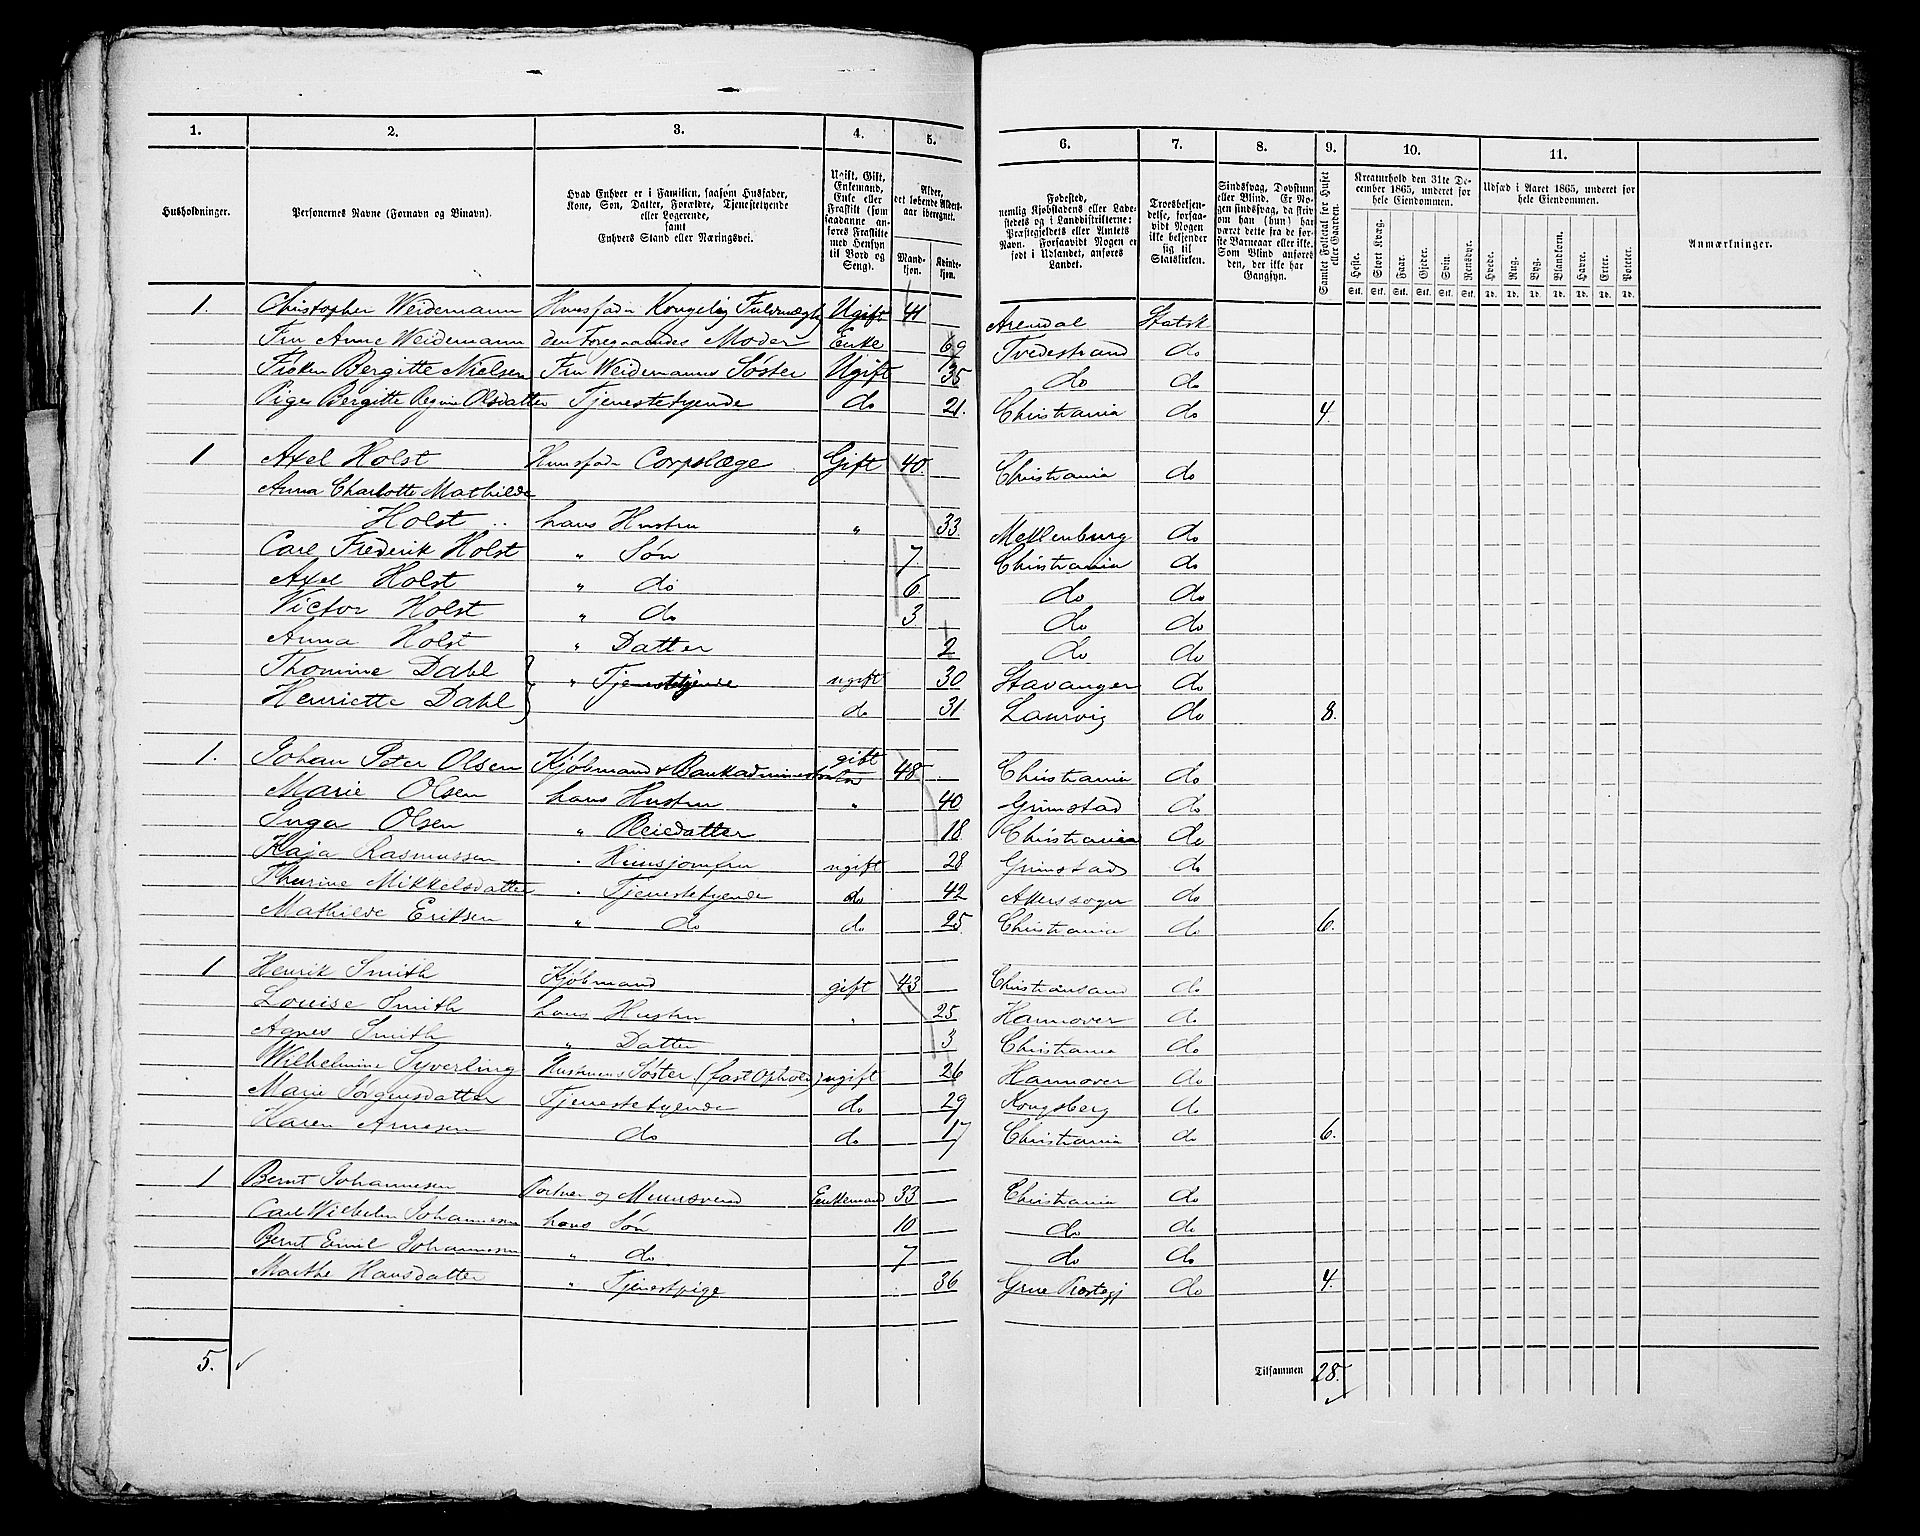 1. 2. 3. 4. 5. 6. 7. 8. 9. 10. 11.
Husholdninger.
Personernes Navne (Fornavn og Binavn).
Hvad Enhver er i Familien, saasom Husfader,
Kone, Søn, Datter, Forældre, Tjenestetyende
eller Logerende,
samt
Enhvers Stand eller Næringsvei.
Ugift, Gift,
Enkemand,
Enke eller
Fraskilt (som
saadanne an-
føres Fraskilte
med Hensyn
til Bord og
Seng).
Alder,
det løbende Alders-
aar iberegnet.
Mand-
kjøn.
Kvinde-
kjøn.
Fødested,
nemlig Kjøbstadens eller Lade-
stedets og i Landdistrikterne:
Præstegjeldets eller Amtets
Navn. Forsaavidt Nogen er
født i Udlandet, anføres
Landet.
Troesbekjen-
delse, forsaa-
vidt Nogen
ikke bekjender
sig til
Statskirken.
Sindssvag, Døvstum
eller Blind. Er No-
gen sindssvag, da skriv
om han (hun) har
været dette fra de før-
ste Barneaar eller ikke.
Som Blind anføres
den, der ikke har
Gangsyn.
Samlet Folketal for Huset
eller Gaarden.
Kreaturhold den 31te De-
cember 1865, underet for
hele Eiendommen.
Heste. Stort Kvæg. Faar. Gjeter. Svin. Rensdyr.
Stk. Stk. Stk. Stk. Stk. Stk.
Udsæd i Aaret 1865, underet for
hele Eiendommen.
Hvede. Rug. Byg. Blandkorn. Havre. Erter. Poteter.
Td. Td. Td. Td. Td. Td. Td.
Anmærkninger.
1. Christopher Weidemann Huusfader Kongelig Fuldmægtig Ugift 41 Arendal Statsk
Fru Anne Weidemann den Foregaaendes Moder Enke 69 Tvedestrand do
Frøken Bergitte Nielsen Fru Weidemanns Søster Ugift 35 do do
Pige Bergitte Regine Olsdatter Tjenestetyende do 21. Christiania do 4.
1 Axel Holst Huusfader Corpslæge Gift 40. Christiania do
Anna Charlotte Mathilde
Holst hans Hustru " 33 Meklenburg do
Carl Frederik Holst " Søn 7 Christiania do
Axel Holst " do 6 do do
Victor Holst " do 3 do do
Anna Holst " Datter 2 do do
Thomine Dahl " Tjenestetyende ugift 30 Stavanger do
Henriette Dahl do 31 Laurvig do 8.
1. Johan Peter Olsen Kjøbmand & Bankadministrator gift 48 Christiania do
Marie Olsen hans Hustru " 40 Grimstad do
Inga Olsen " Pleiedatter 18 Christiania do
Kaja Rasmussen " Huusjomfru ugift 28 Grimstad do
Thurine Mikkelsdatter " Tjenestetyende do 42 Akers sogn do
Mathilde Eriksen " do do 25 Christiania do 6.
1 Henrik Smith Kjøbmand gift 43 Christiansand do
Louise Smith hans Hustru " 25 Hannover do
Agnes Smith " Datter 3 Christiania do
Wilhelmine Syverling Hustruens Søster (fast Ophold) ugift 26 Hannover do
Marie Jørgensdatter Tjenestetyende do 29 Kongsberg do
Karen Arnesen do do 17 Christiania do 6.
1 Bernt Johannesen Portner og Muursvend Enkemand 33 Christiania do
Carl Wilhelm Johannesen hans Søn 10 do do
Bernt Emil Johannesen " do 7 do do
Marthe Hansdatter " Tjenestpige 36 Grue Præstegj do 4.
5.
Tilsammen 28.